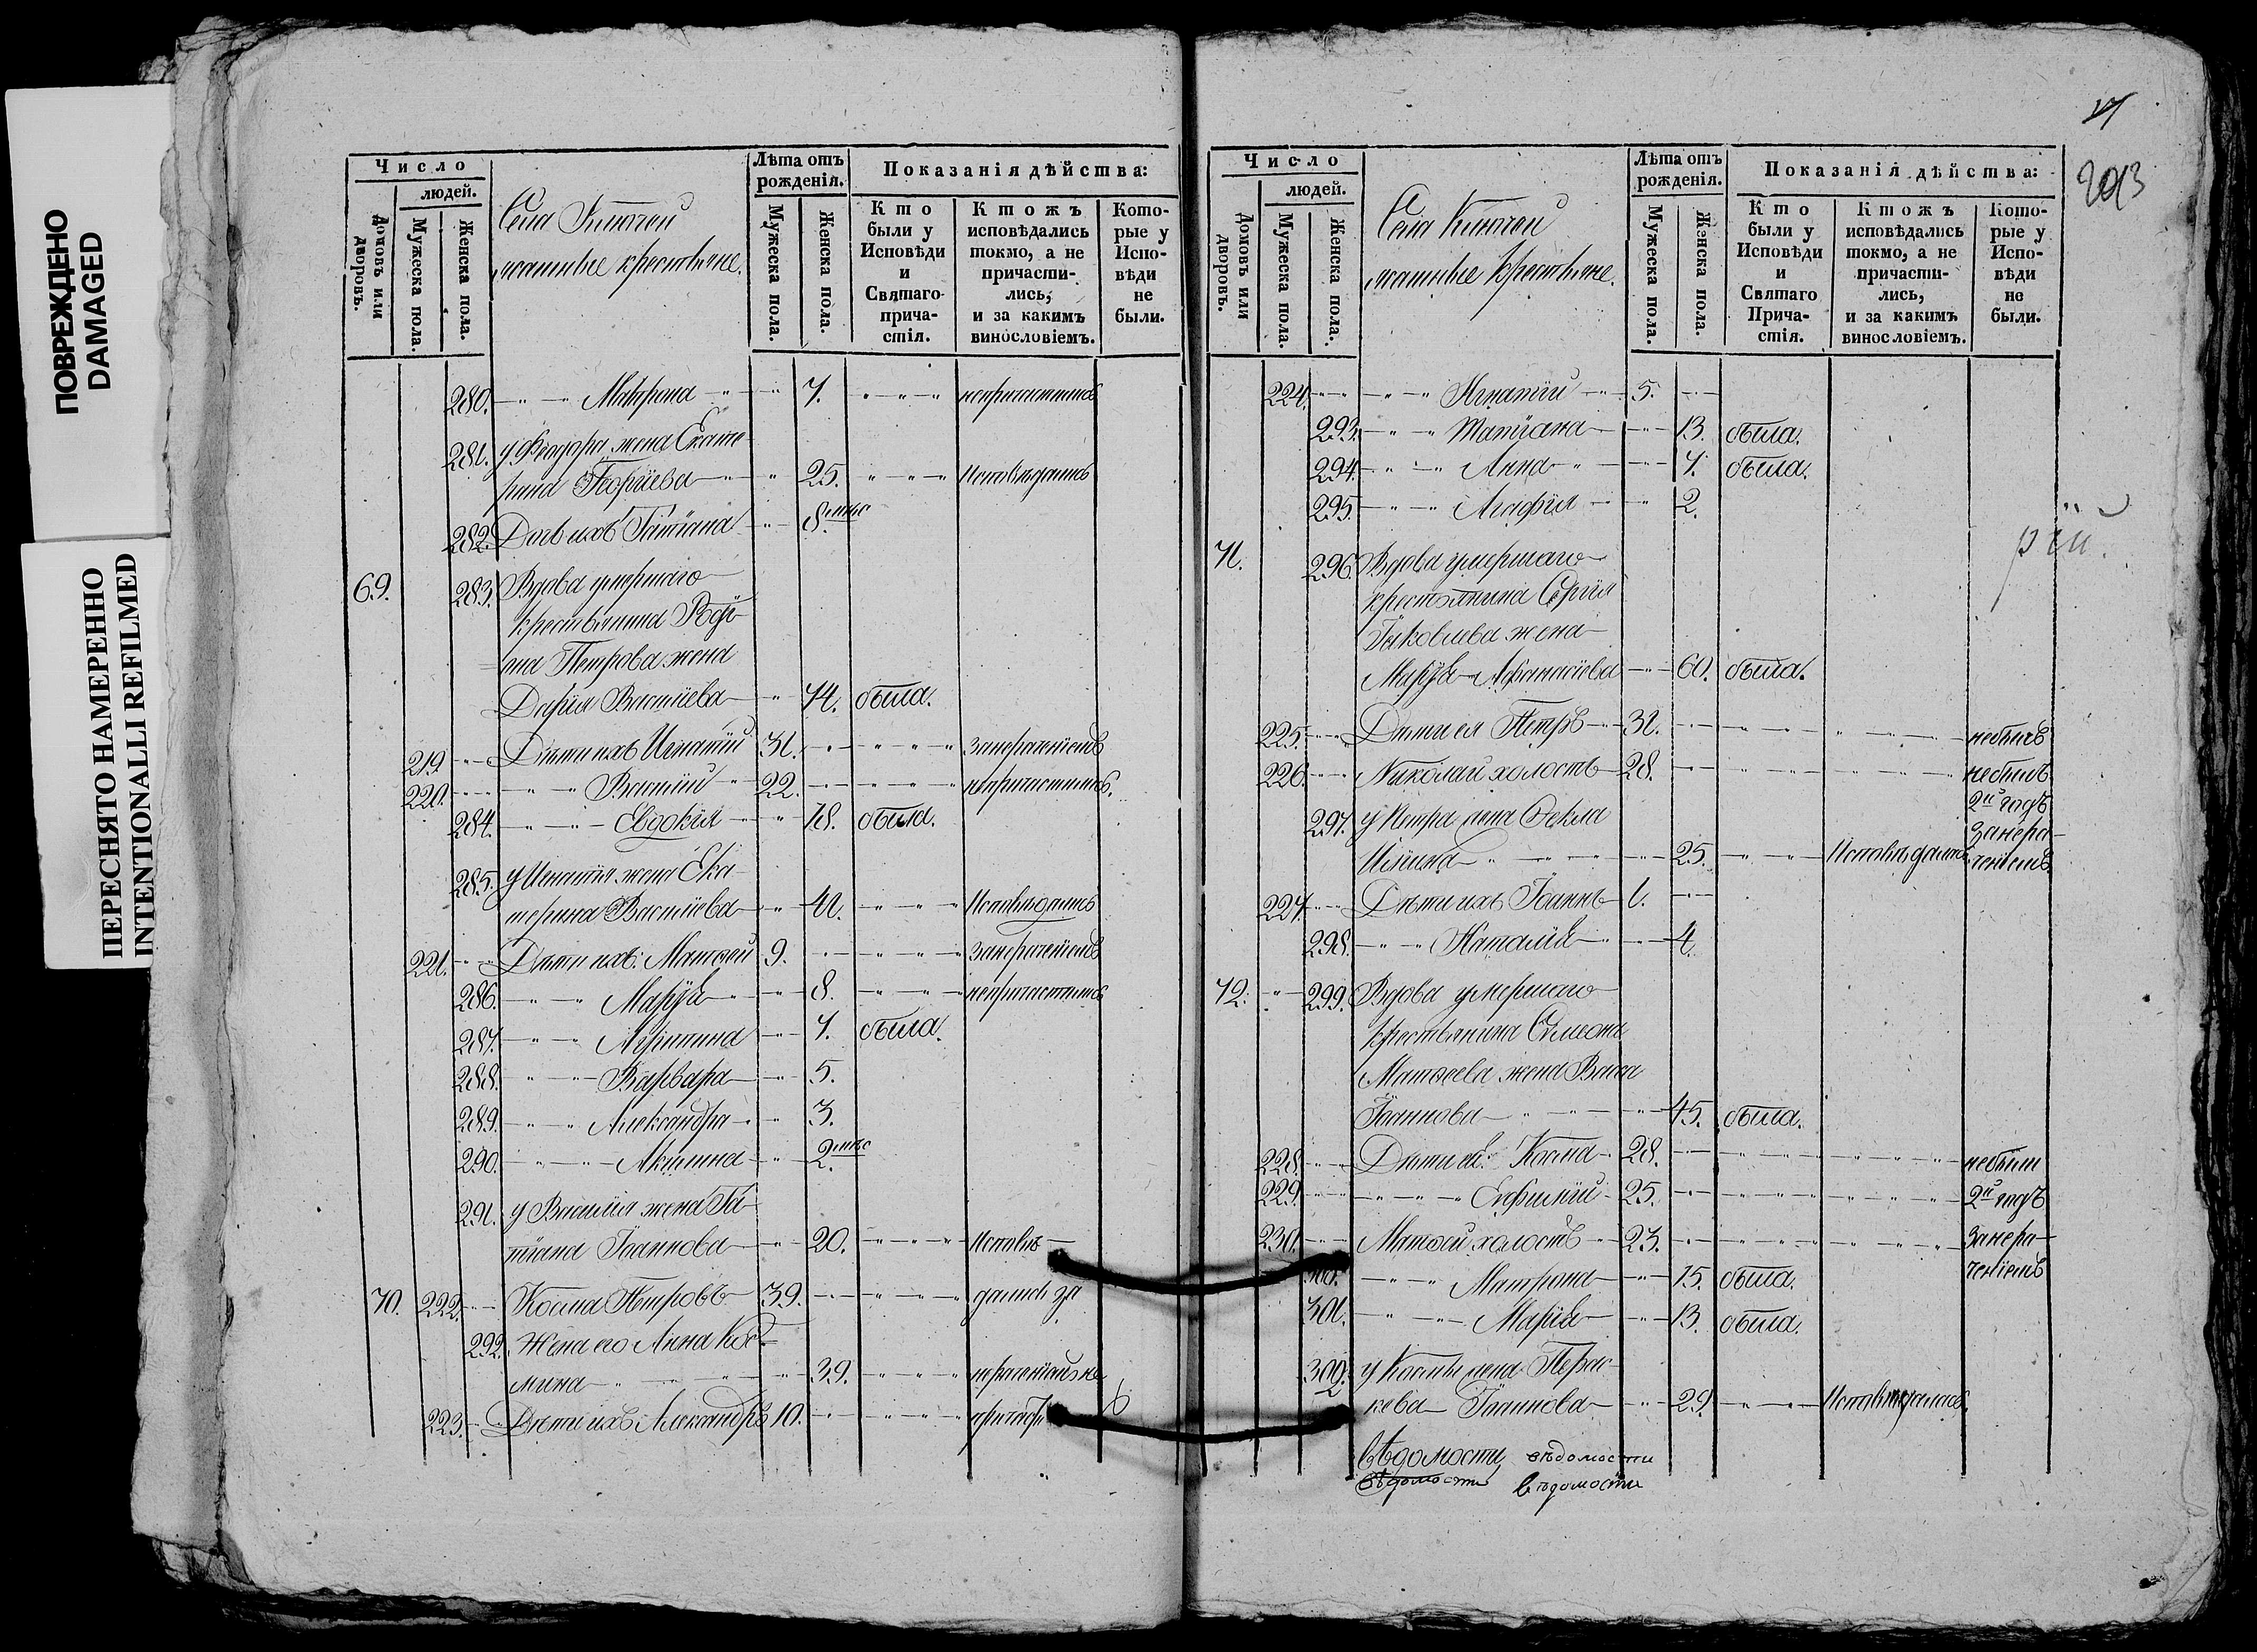 ПОВРЕЖДЕНО
DAMAGED
ПЕРЕСНЯТО НАМЕРЕННО
INTENTIONALLI REFILMED
Число
людей.
Домовъ или дворовъ.
Мужеска пола.
Женска пола.
Села Ключей
крестьяне.
Лѣта отъ рожденія.
Мужеска пола.
Женска пола.
Показанія дѣйства:
Кто были у Исповѣди и Святаго причастія.
Ктожъ исповѣдались токмо, а не причастились, и за какимъ винословіемъ.
Которые у Исповѣди не были.
280. Матрона 7. непричастилась
281. у Феодора жена Екате-
рина Георгіева 25. Исповѣдались
282. Дочь ихъ Татіана 8. мѣс
69. 283. Вдова умершаго
крестьянина Родіо-
на Петрова жена
Дарія Василіева 74. была.
219 Дѣти ихъ Игнатій 31. занераченіемъ
220. Василій 22. непричастились.
284. Евдокія 18. была.
285. у Игнатія жена Ека-
терина Василіева 41. Исповѣдались
221. Дѣти ихъ: Матѳей 9. занераченіемъ
286. Марія 8. непричастились
287. 7. была.
288. Варвара 5.
289. Александра 3.
290. Акилина 2. мѣс
291. у Василія жена Та-
тіана Іоаннова 20. Исповѣ-
70. 222. Косма Петровъ 39. дались за
292. Жена его Анна Кос-
мина 39. нераченіемъ не
223. Дѣти ихъ Александръ 10. причасти
Число
людей.
Домовъ или дворовъ.
Мужеска пола.
Женска пола.
Села Ключей
крестьяне.
Лѣта отъ рожденія.
Мужеска пола.
Женска пола.
Показанія дѣйства:
Кто были у Исповѣди и Святаго Причастія.
Ктожъ исповѣдались токмо, а не причастились, и за какимъ винословіемъ.
Которые у Исповѣди не были.
2013
224. Игнатій 5.
293. Татіана 13. была.
294. Анна 7. была.
295. Агафія 2.
рій.
71. 296. Вдова умершаго
крестьянина Сергія
Іаковлева жена
Марія Афанасіева 60. была.
225. Дѣти ея Петръ 31. небылъ
226. Николай холостъ 28. небылъ
2й годъ
297. у Петра жена Ѳекла занера-
Ильина 25. Исповѣдалась ченіемъ
227. Дѣти ихъ Іоаннъ 1.
298. Наталія 4.
72. 299. Вдова умершаго
крестьянина Симеона
Матѳеева жена Васса
Іоаннова 45. была.
228. Дѣти ея: Косма 28. небыли
229. Евфимій 25. 2й годъ
230. Матѳей холостъ 23. занера-
300. Матрона 15. была. ченіемъ
301. Марія 13. была.
302. у Космы жена Парас-
кева Іоаннова 29. Исповѣдалась.
вѣдомости вѣдомости
вѣдомости вѣдомости